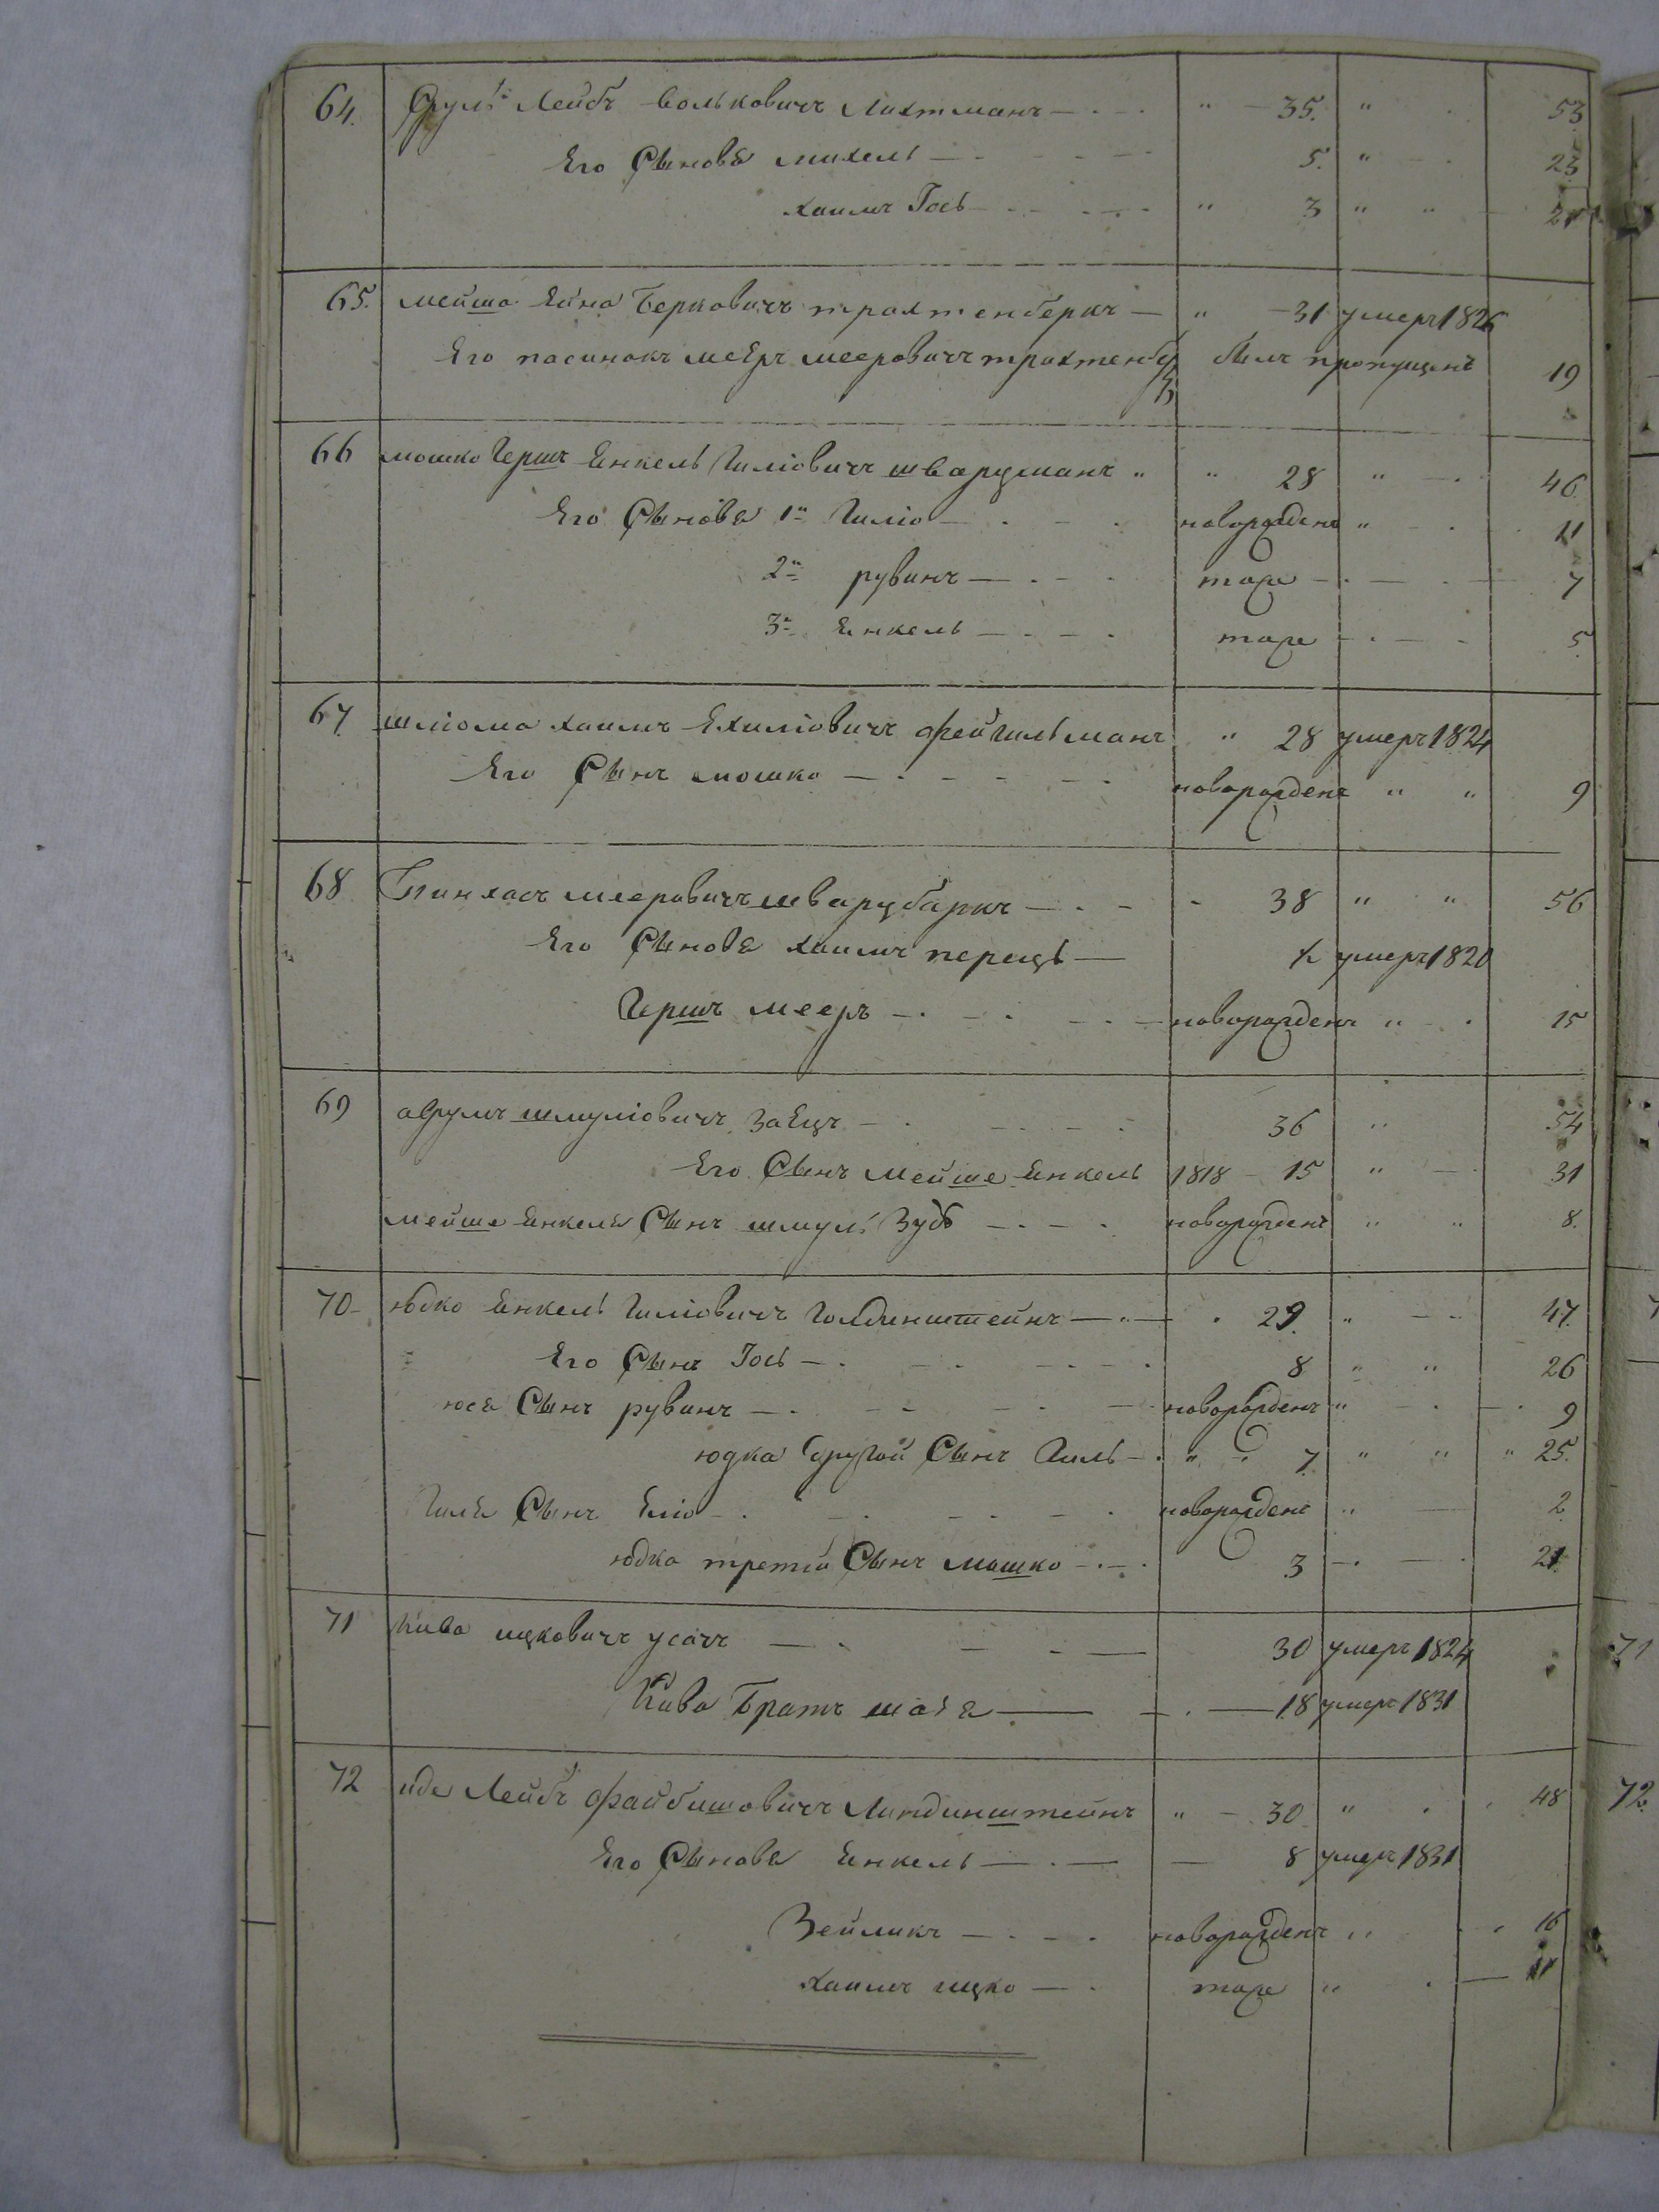 64. Сруль Лейбъ Вольковичъ Лихтманъ — " — 35. " 53
Его Сыновя михель — 5. " 23
хаимъ Іось — " 3 " " 21
65. мейша Ейна Берковичъ трахтенберкъ — " — 31 умеръ 1826
Его пасинокъ меѣръ мееровичъ трахтенбер былъ пропущенъ 19
66 мошко Гершъ Енкель Гилювичъ шварцманъ " " 28 " 46
Его Сыновя 1й Гилю — новорожденъ " 11
2й рувинъ — тоже — 7
3й Енкель — тоже — 5
67 шлюома хаимъ Ехилювичъ фейгильманъ " 28 умеръ 1824
Его Сынъ мошко — новорожденъ " " 9
68 Пинхасъ мееровичъ шварцбаркъ — 38 " " 56
Его Сыновя хаимъ перецъ — умеръ 1820
Гершъ мееръ — новорожденъ " 15
69 аврумъ шмулювичъ Заецъ — 36 " 54
Его Сынъ мейше Енкель 1818 — 15 " 31
мейше Енкеля Сынъ шмуль Зудъ — новорожденъ " " 8.
70 юдко Енкель Гилювичъ Голдинштейнъ — 29. " 47.
Его Сынъ Іось — 8 " " 26
юся Сынъ рувинъ — новорожденъ " 9
юдка другой Сынъ Гиль — " 7 " " " 25.
Гиля Сынъ Елю — новорожденъ " 2
юдка третій Сынъ мошко — 3 — 21
71 Кива ицковичъ усачъ — 30 умеръ 1824
Кива Братъ шаея — 18 умеръ 1831
72 иде Лейбъ файбишовичъ Линдинштейнъ " — 30 " 48
Его Сыновя Енкель — 8 умеръ 1831
Зейликъ — новорожденъ " 16
хаимъ ицко — тоже " — 11
71
72